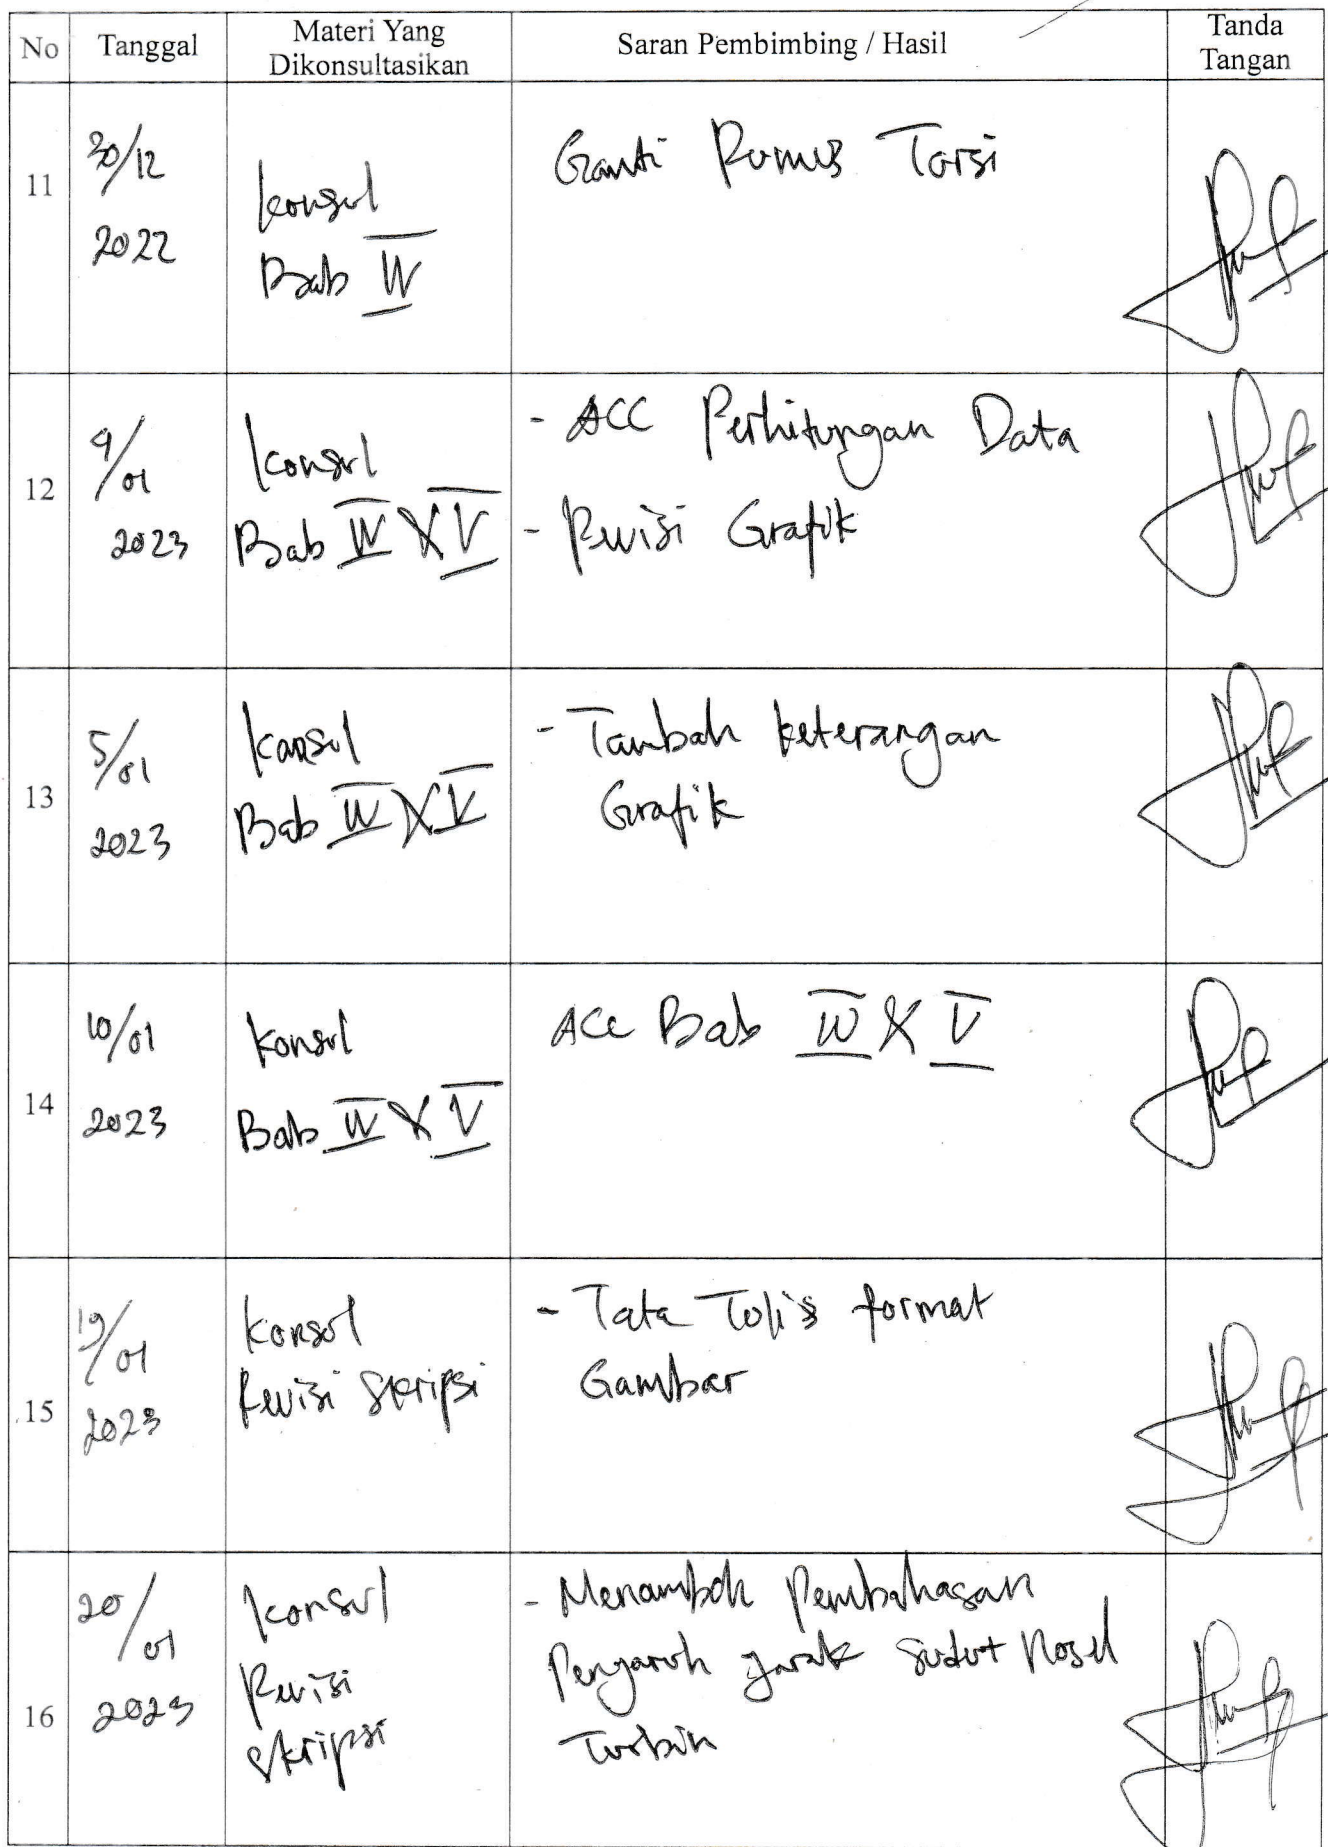 No Tanggal Materi Yang Dikonsultasikan Saran Pembimbing / Hasil Tanda Tangan
11
30/12
2022
konsul
Bab IV
Ganti Rumus Torsi
12
4/01
2023
konsul
Bab IV & V
- ACC Perhitungan Data
- Revisi Grafik
13
5/01
2023
konsul
Bab IV & V
- Tambah keterangan
Grafik
14
10/01
2023
konsul
Bab IV & V
ACC Bab IV & V
15
19/01
2023
konsul
Revisi Skripsi
- Tata Tulis format
Gambar
16
20/01
2023
konsul
Revisi
Skripsi
- Menambah Pembahasan
Pengaruh Jarak Sudut Nosel
Turbin